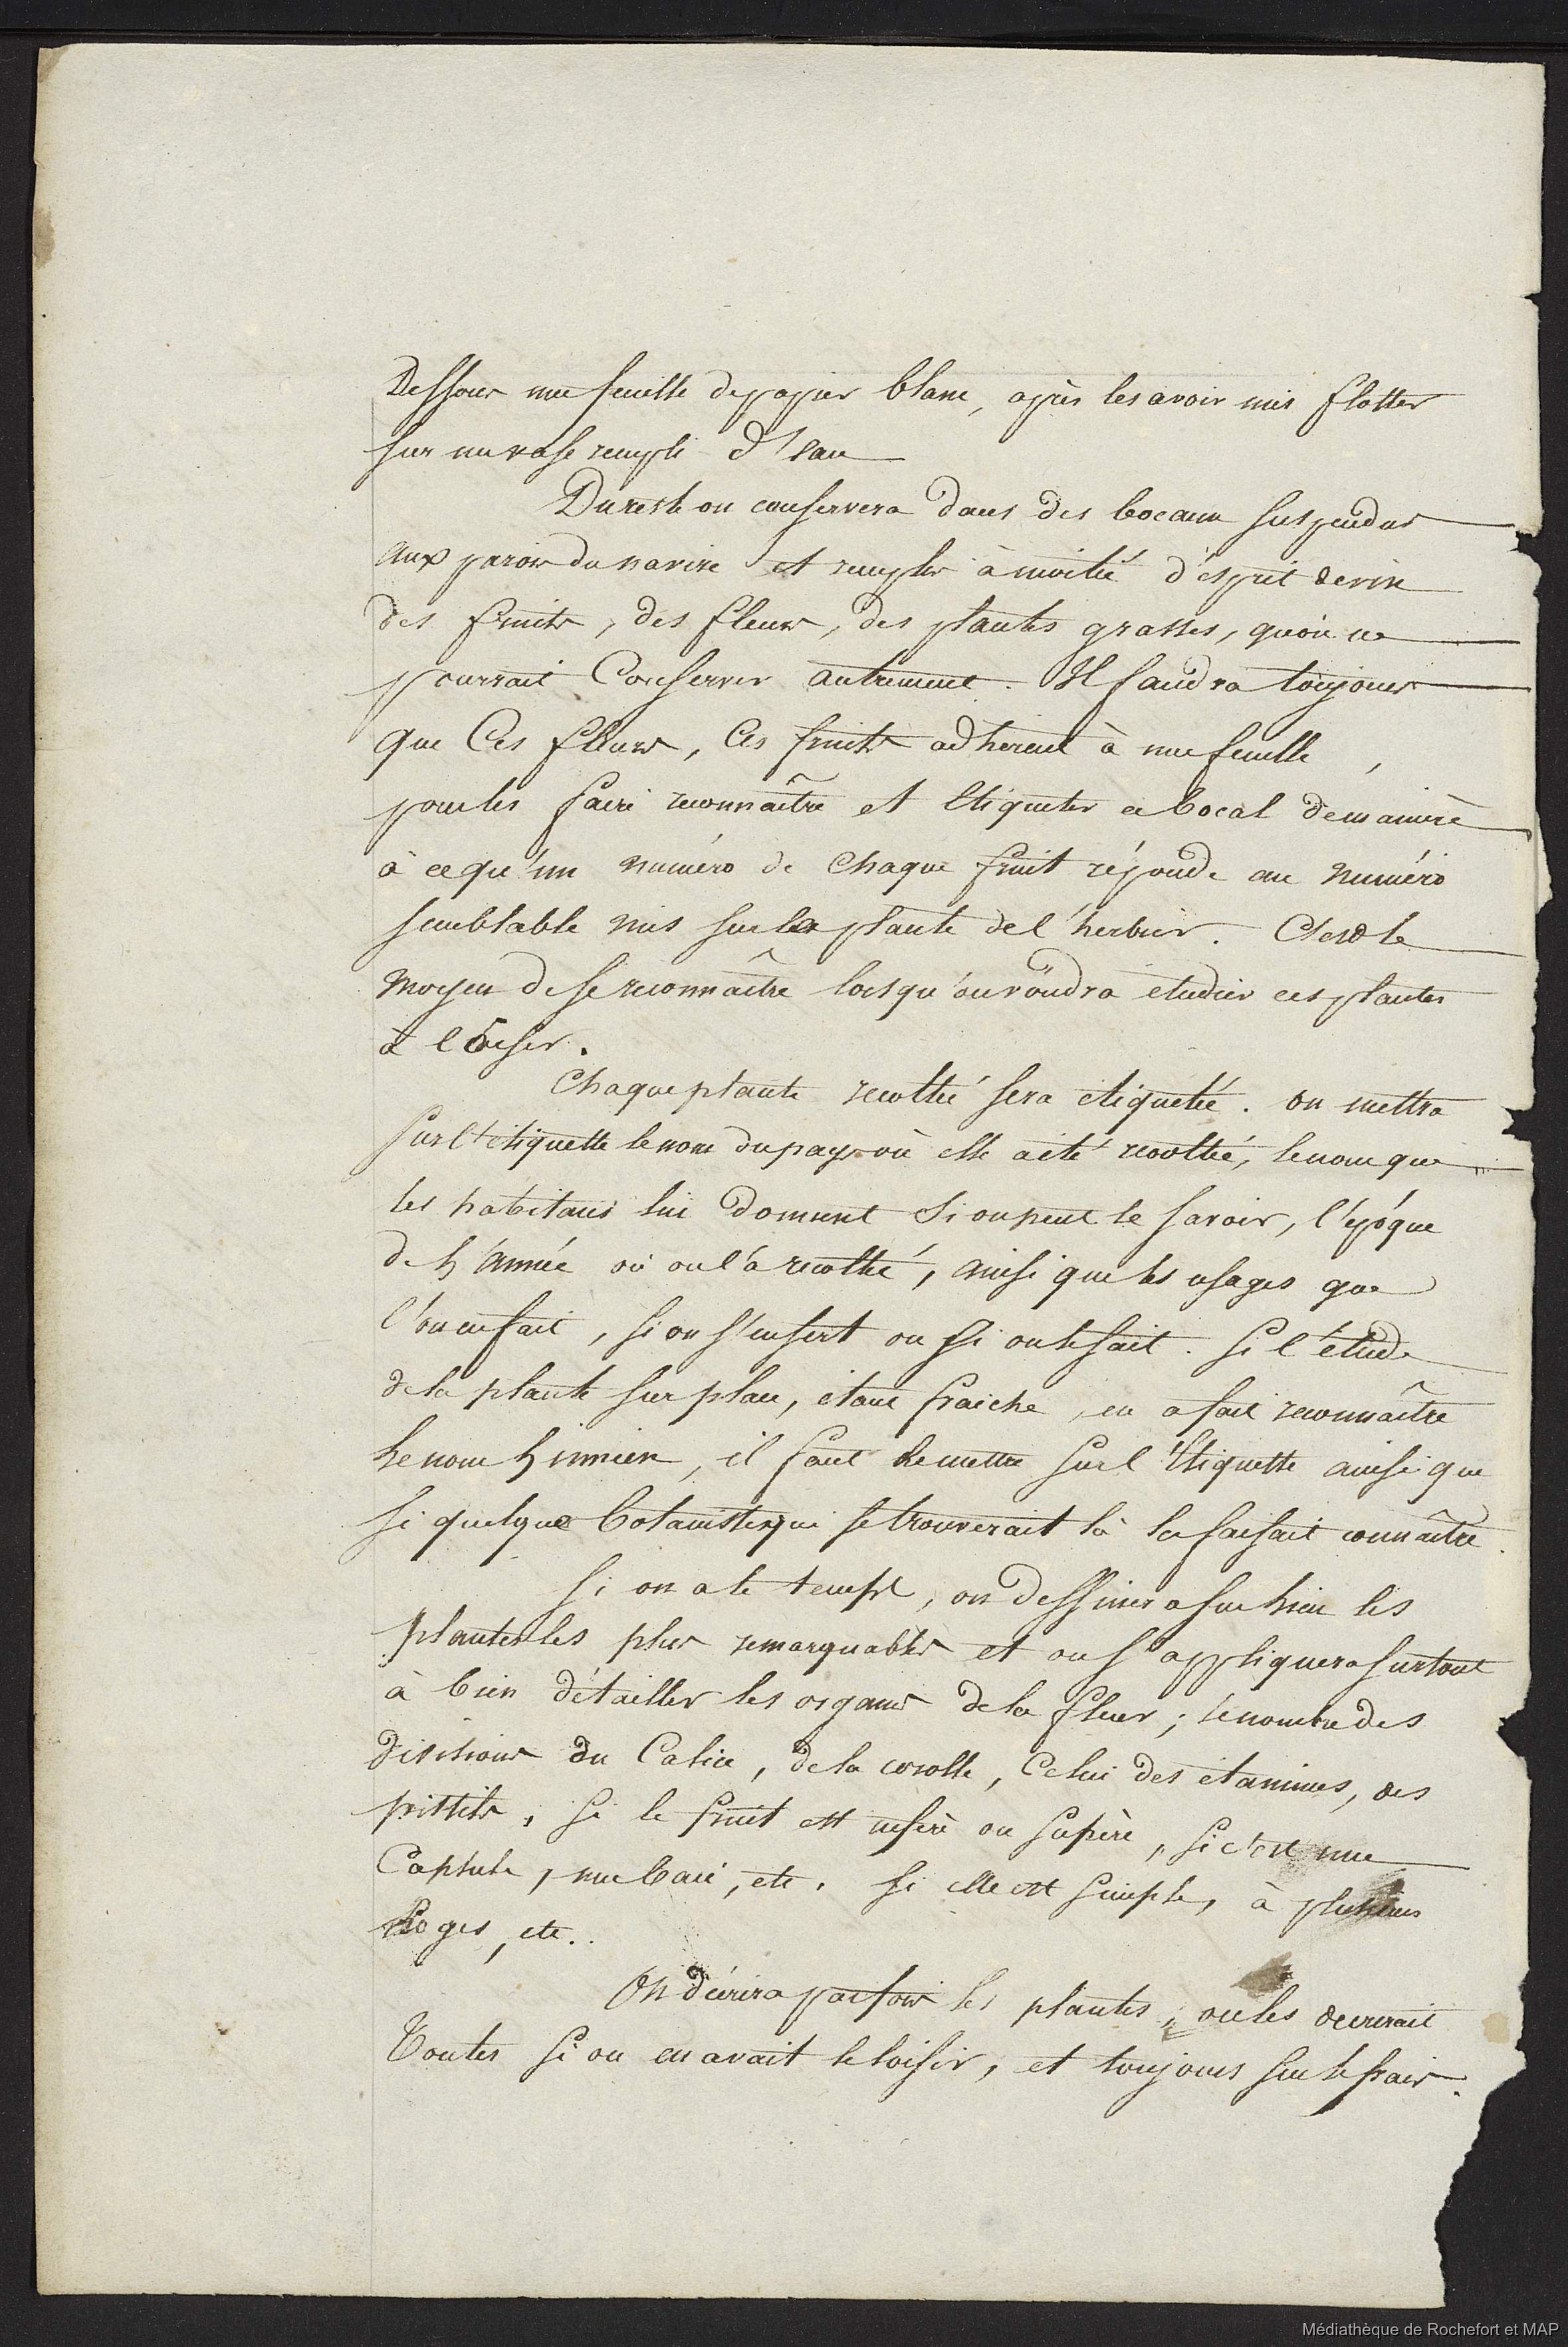 Dessous une feuille de papier blanc, après les avoir mis flotter
sur un vase rempli d'eau
Du reste on conservera dans des bocaux suspendus
aux parois du navire et remplis à moitié d'esprit de vin
des fruits, des fleurs, des plantes grasses, qu'on ne
pourrait Conserver autrement. Il faudra toujours
que Ces fleurs, Ces fruits adherent à une feuille,
pour les faire reconnaître et Etiqueter ce bocal de manière
à ce qu'un numéro de Chaque fruit réponde au numéro
semblable mis sur la plante de l'herbier. C'est le
moyen de se reconnaître lorsqu'on voudra etudier ces plantes
à loisir.
Chaque plante recoltée sera etiquetée. on mettra
sur l'etiquette le nom du pays où elle a été recoltée, le nom que
les habitans lui donnent si on peut le savoir, l'époque
de l'année où on l'a recoltée, ainsi que les usages que
l'on en fait, si on s'en sert ou si on le sait. si l'étude
de la plante sur place, étant fraiche, en a fait reconnaître
le nom Linnéen, il faut le mettre sur l'Etiquette ainsi que
si quelque botaniste qui se trouverait là la faisait connaître.
Si on a le temps, on dessinera sur lieu les
plantes les plus remarquables et on s'appliquera surtout
à bien détailler les organes de la fleur; le nombre des
divisions du Calice, de la corolle, Celui des étamines, des
pistils, si le fruit est infère ou supère, si c'est une
Capsule, une baie, etc. si elle est simple, à plusieurs
loges, etc..
On décrira parfois les plantes, on les decrirait
Toutes si on en avait le loisir, et toujours sur le frais.
Médiathèque de Rochefort et MAP